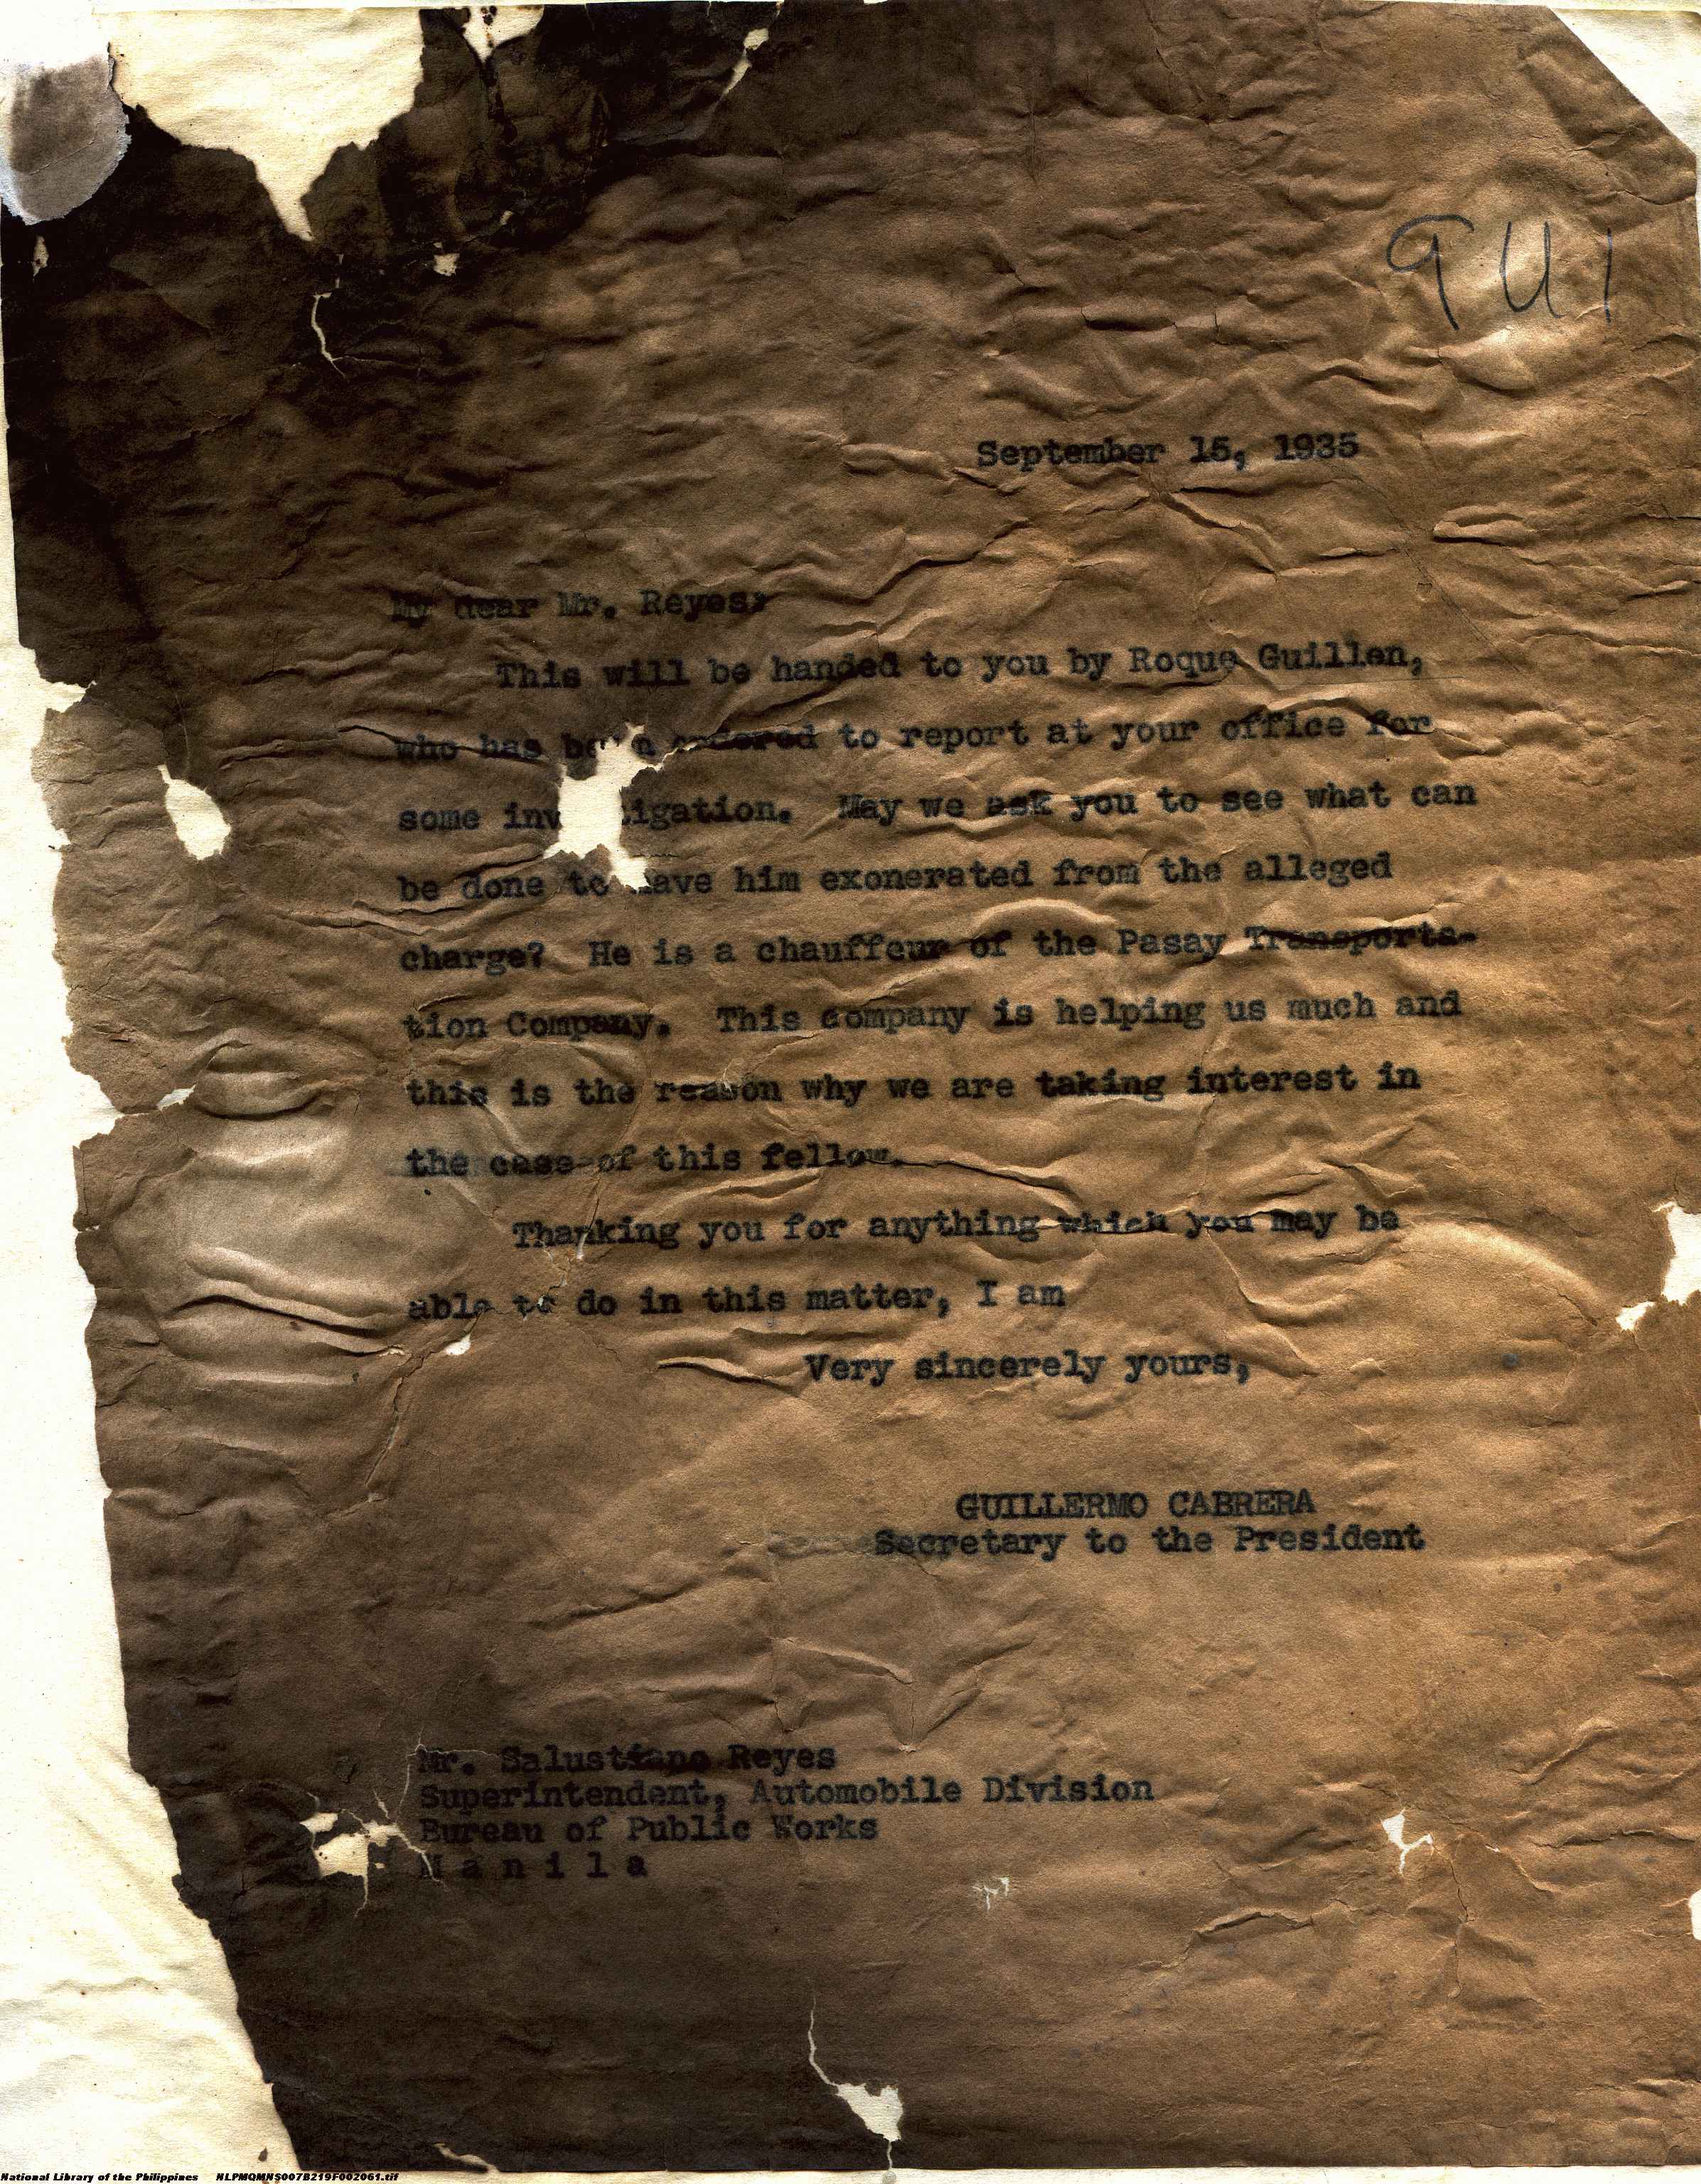 September 15, 1935
My dear Mr. Reyes:
This will be handed to you by Roque Guillen,
who has been ordered to report at your office for
some inv tigation. May we ask you to see what can
be done to have him exonerated from the alleged
charge? He is a chauffeur of the Pasay Transporta-
tion Company. This company is helping us much and
this is the reason why we are taking interest in
the case of this fellow.
Thanking you for anything which you may be
able to do in this matter, I am
Very sincerely yours,
GUILLERMO CABRERA
Secretary to the President
Mr. Salustiano Reyes
Superintendent, Automobile Division
Bureau of Public Works
M a n i l a
National Library of the Philippines NLPMQMNS007B219F002061.tif